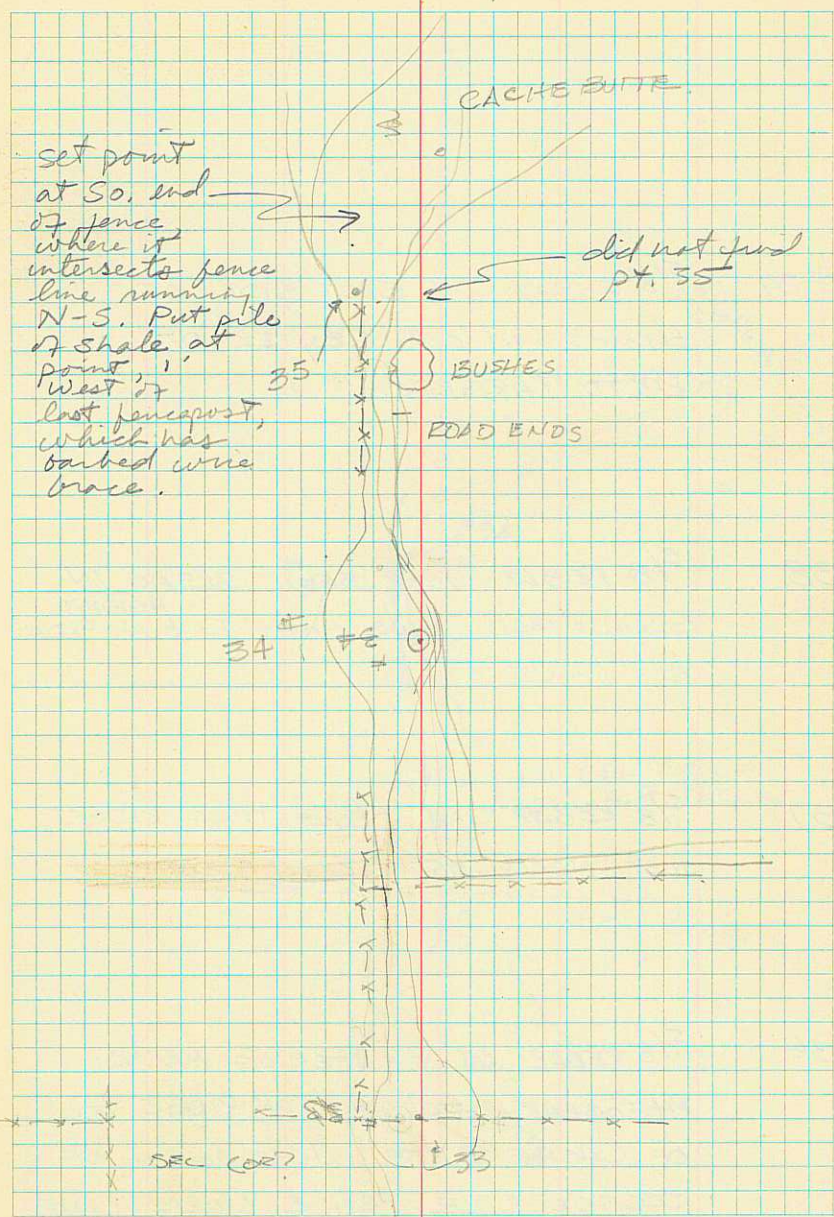 CACHE BUTTE
set point
at So. end
of fence,
where it
intersects fence
line running
N-S. Put pile
of shale at
point, 1'
West of
last fencepost,
which has
barbed wire
brace.
did not find
pt. 35
35
BUSHES
ROAD ENDS
34
34
SEC COR?
33